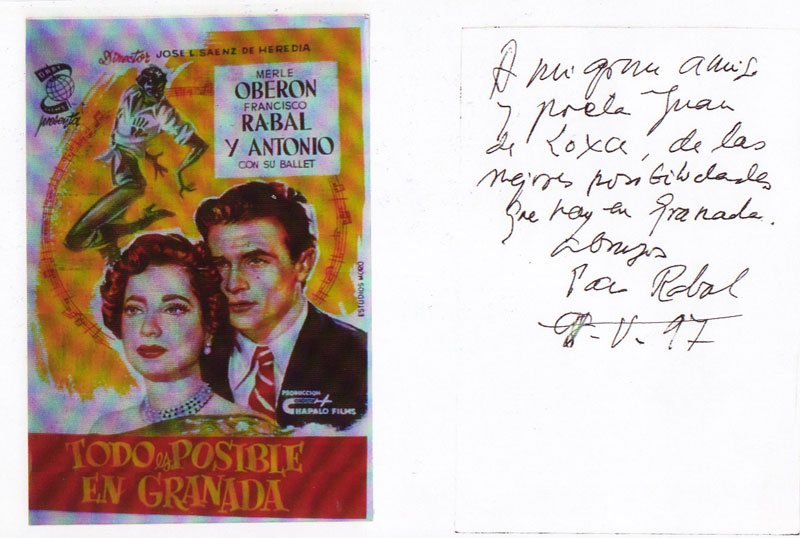 Director JOSE L. SAENZ DE HEREDIA
presenta
MERLE
OBERON
FRANCISCO
RABAL
Y ANTONIO
CON SU BALLET
ESTUDIOS MORO
PRODUCCION
CHAPALO FILMS
TODO es POSIBLE
EN GRANADA
A mi gran amigo
y poeta Juan
de Loxa, de las
mejores posibilidades
que hay en Granada.
Abrazos
Paco Rabal
-V-97